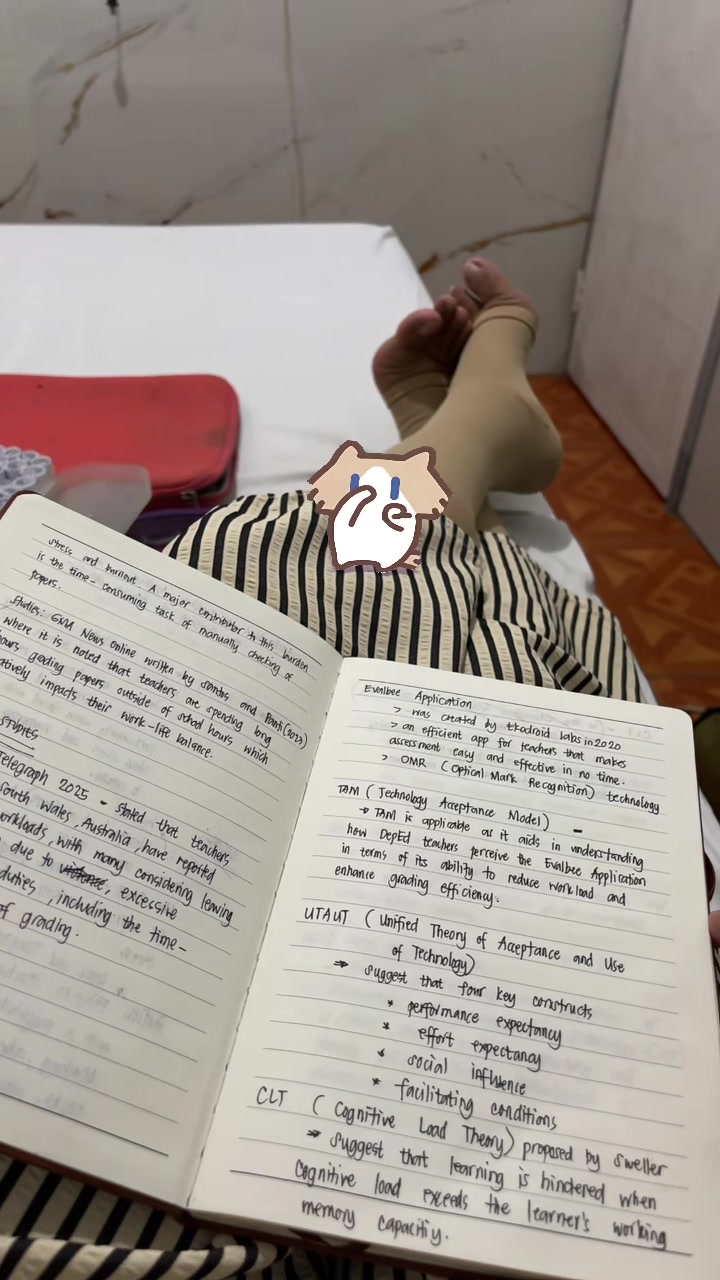 stress and burnout. A major contributor to this burden
is the time-consuming task of manually checking of
papers.
Studies: GMA News Online written by Santos and Panti (2023)
where it is noted that teachers are spending long
hours grading papers outside of school hours which
atively impacts their work-life balance.
Telegraph 2025 - stated that teachers
South Wales, Australia, have reported
workloads, with many considering leaving
due to excessive
duties, including the time-
of grading.
Evalbee Application
> was created by tkodroid labs in 2020
> an efficient app for teachers that makes
assessment easy and effective in no time.
> OMR (Optical Mark Recognition) technology
TAM (Technology Acceptance Model) -
→ TAM is applicable as it aids in understanding
how DepEd teachers perceive the Evalbee Application
in terms of its ability to reduce workload and
enhance grading efficiency.
UTAUT (Unified Theory of Acceptance and Use
of Technology)
→ suggest that four key constructs
* performance expectancy
* effort expectancy
* social influence
* facilitating conditions
CLT (Cognitive Load Theory) proposed by Sweller
→ suggest that learning is hindered when
cognitive load exceeds the learner's working
memory capacitiy.